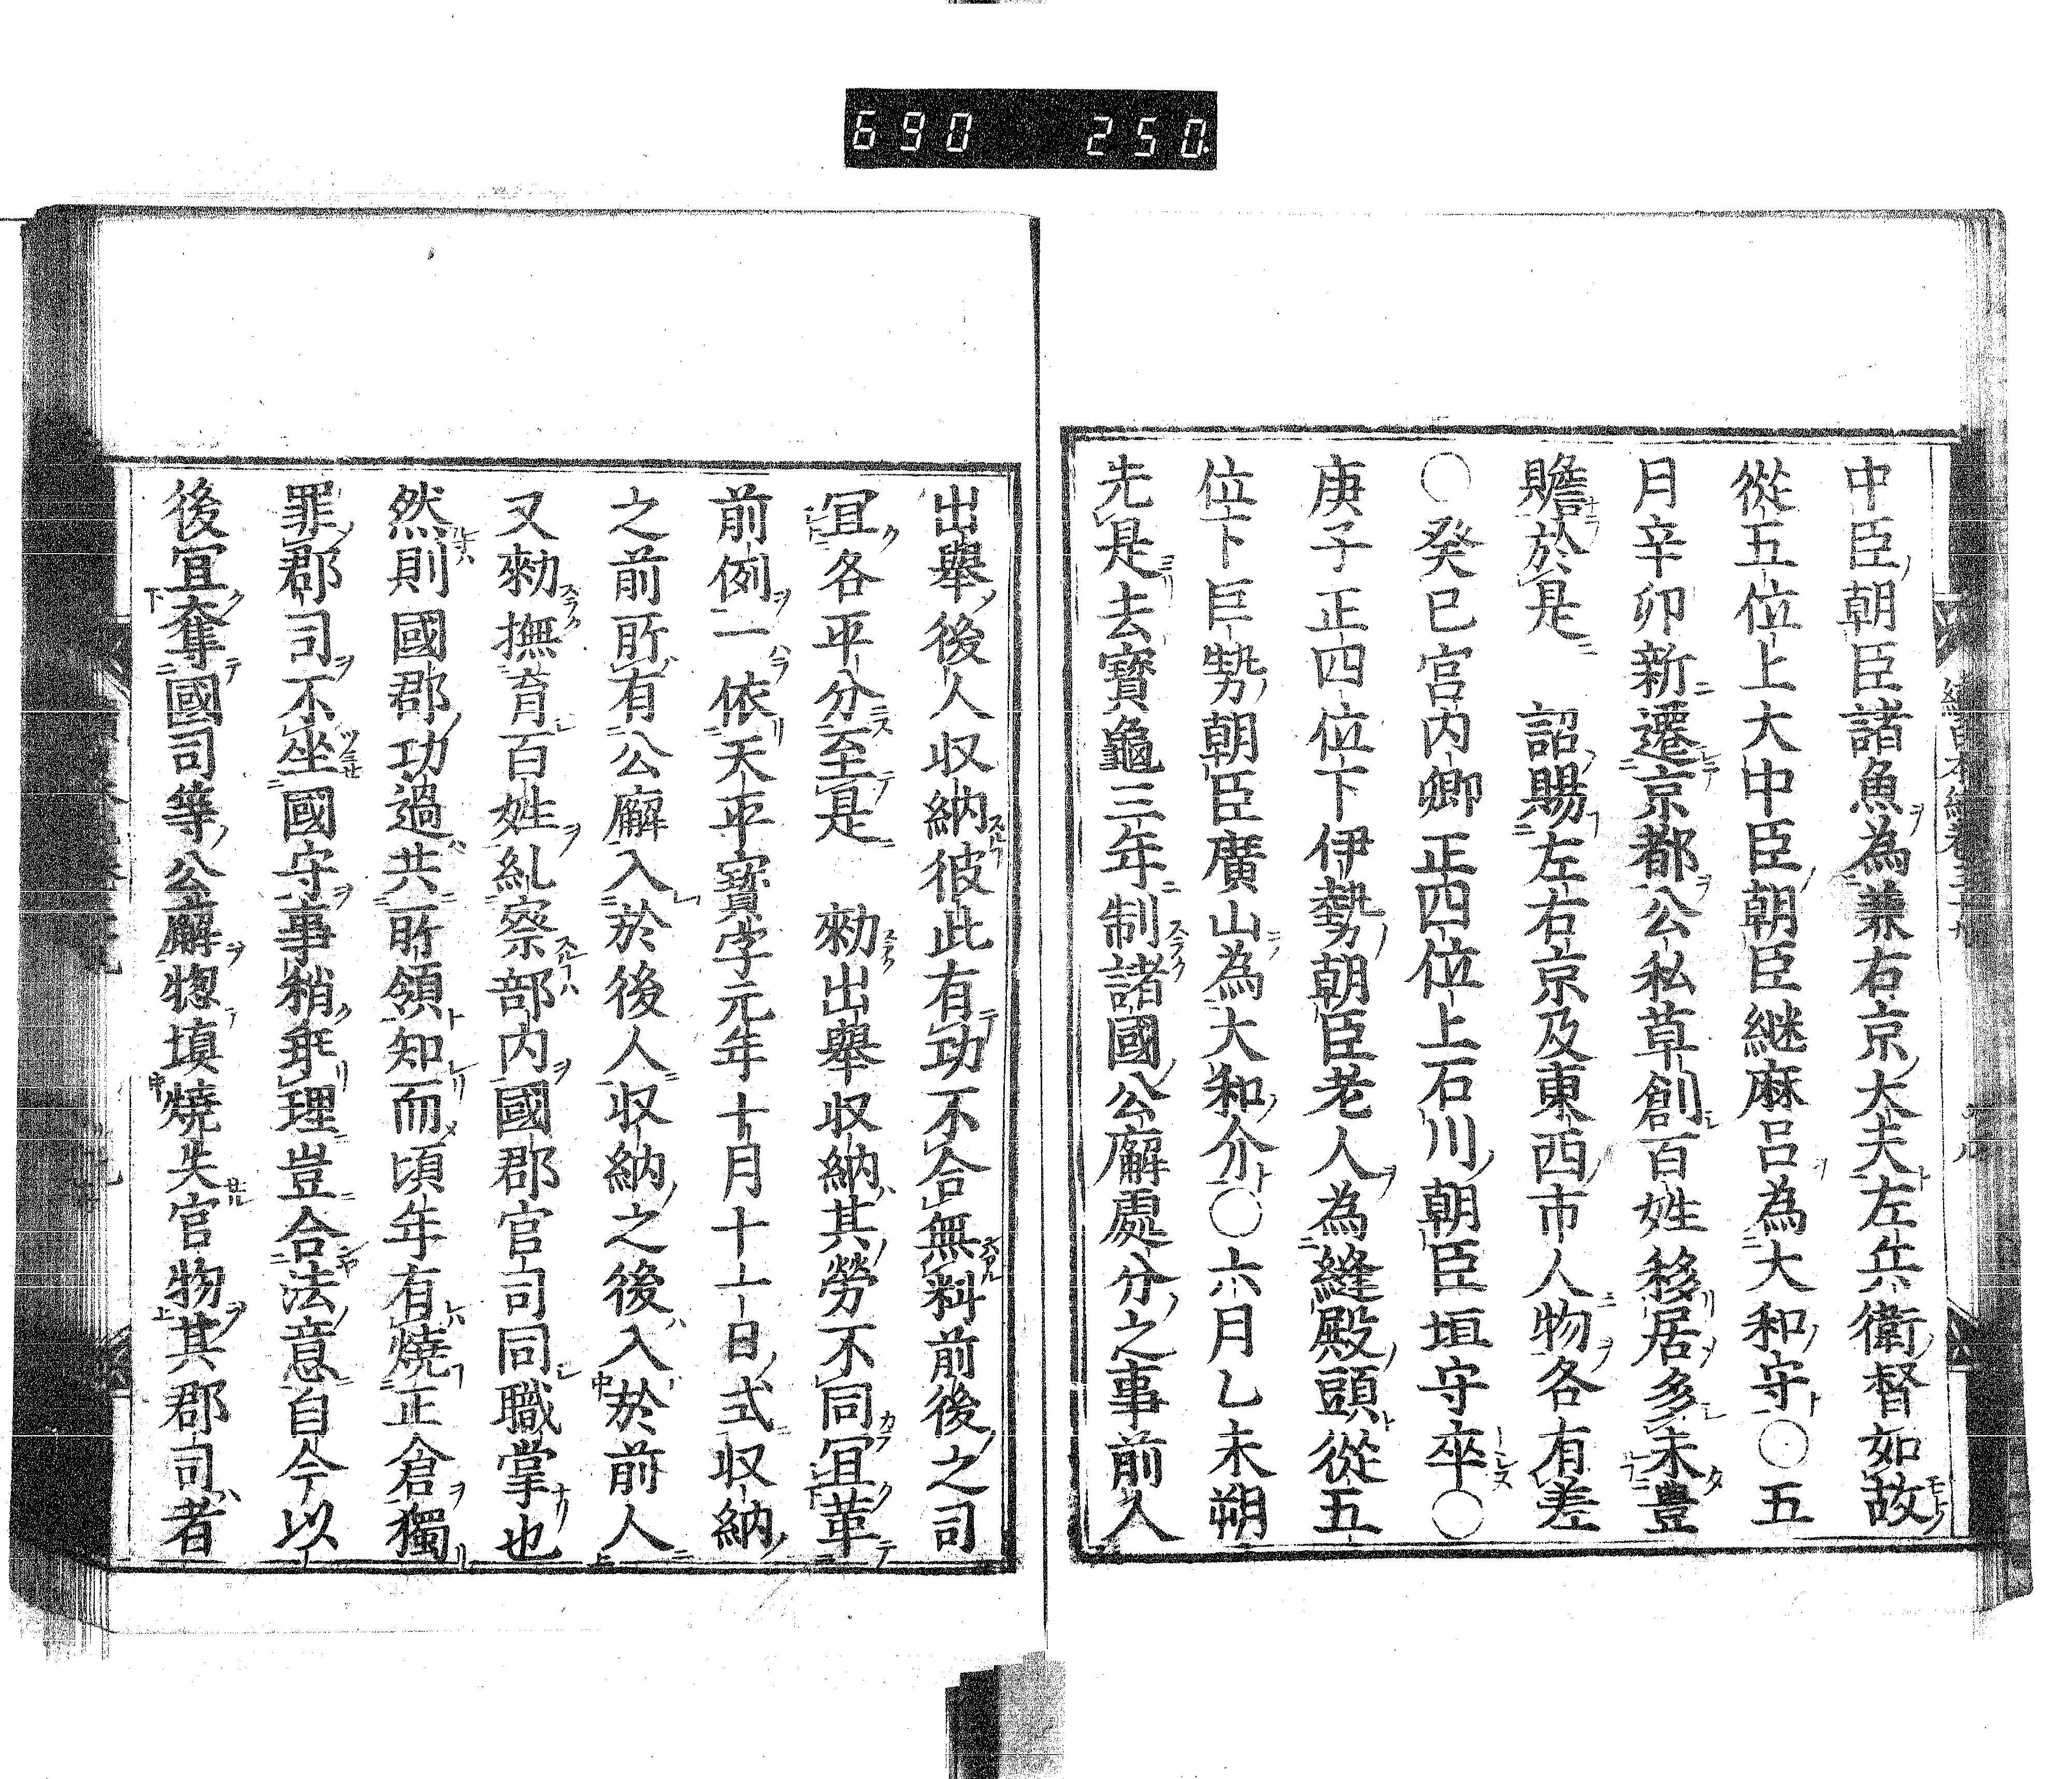 690 250.
中臣朝臣諸魚為兼右京大夫左兵衛督如故
從五位上大中臣朝臣継麻呂為大和守○五
月辛卯新遷京都公私草創百姓移居多未豊
贍於是 詔賜左右京及東西市人物各有差
○癸巳宮内卿正四位上石川朝臣垣守卒○
庚子正四位下伊勢朝臣老人為縫殿頭從五
位下巨勢朝臣廣山為大和介○六月乙未朔
先是去寶龜三年制諸國公廨處分之事前人
出舉後人収納彼此有功不合無料前後之司
冝各平分至是 勑出舉収納其勞不同冝革
前例一依天平寶字元年十月十一日式収納
之前所有公廨入於後人収納之後入於前人
又勑撫育百姓糺察部内國郡官司同職掌也
然則國郡功過共所領知而頃年有燒正倉獨
罪郡司不坐國守事稍乖理豈合法意自今以
後冝奪國司等公廨惣填燒失官物其郡司者